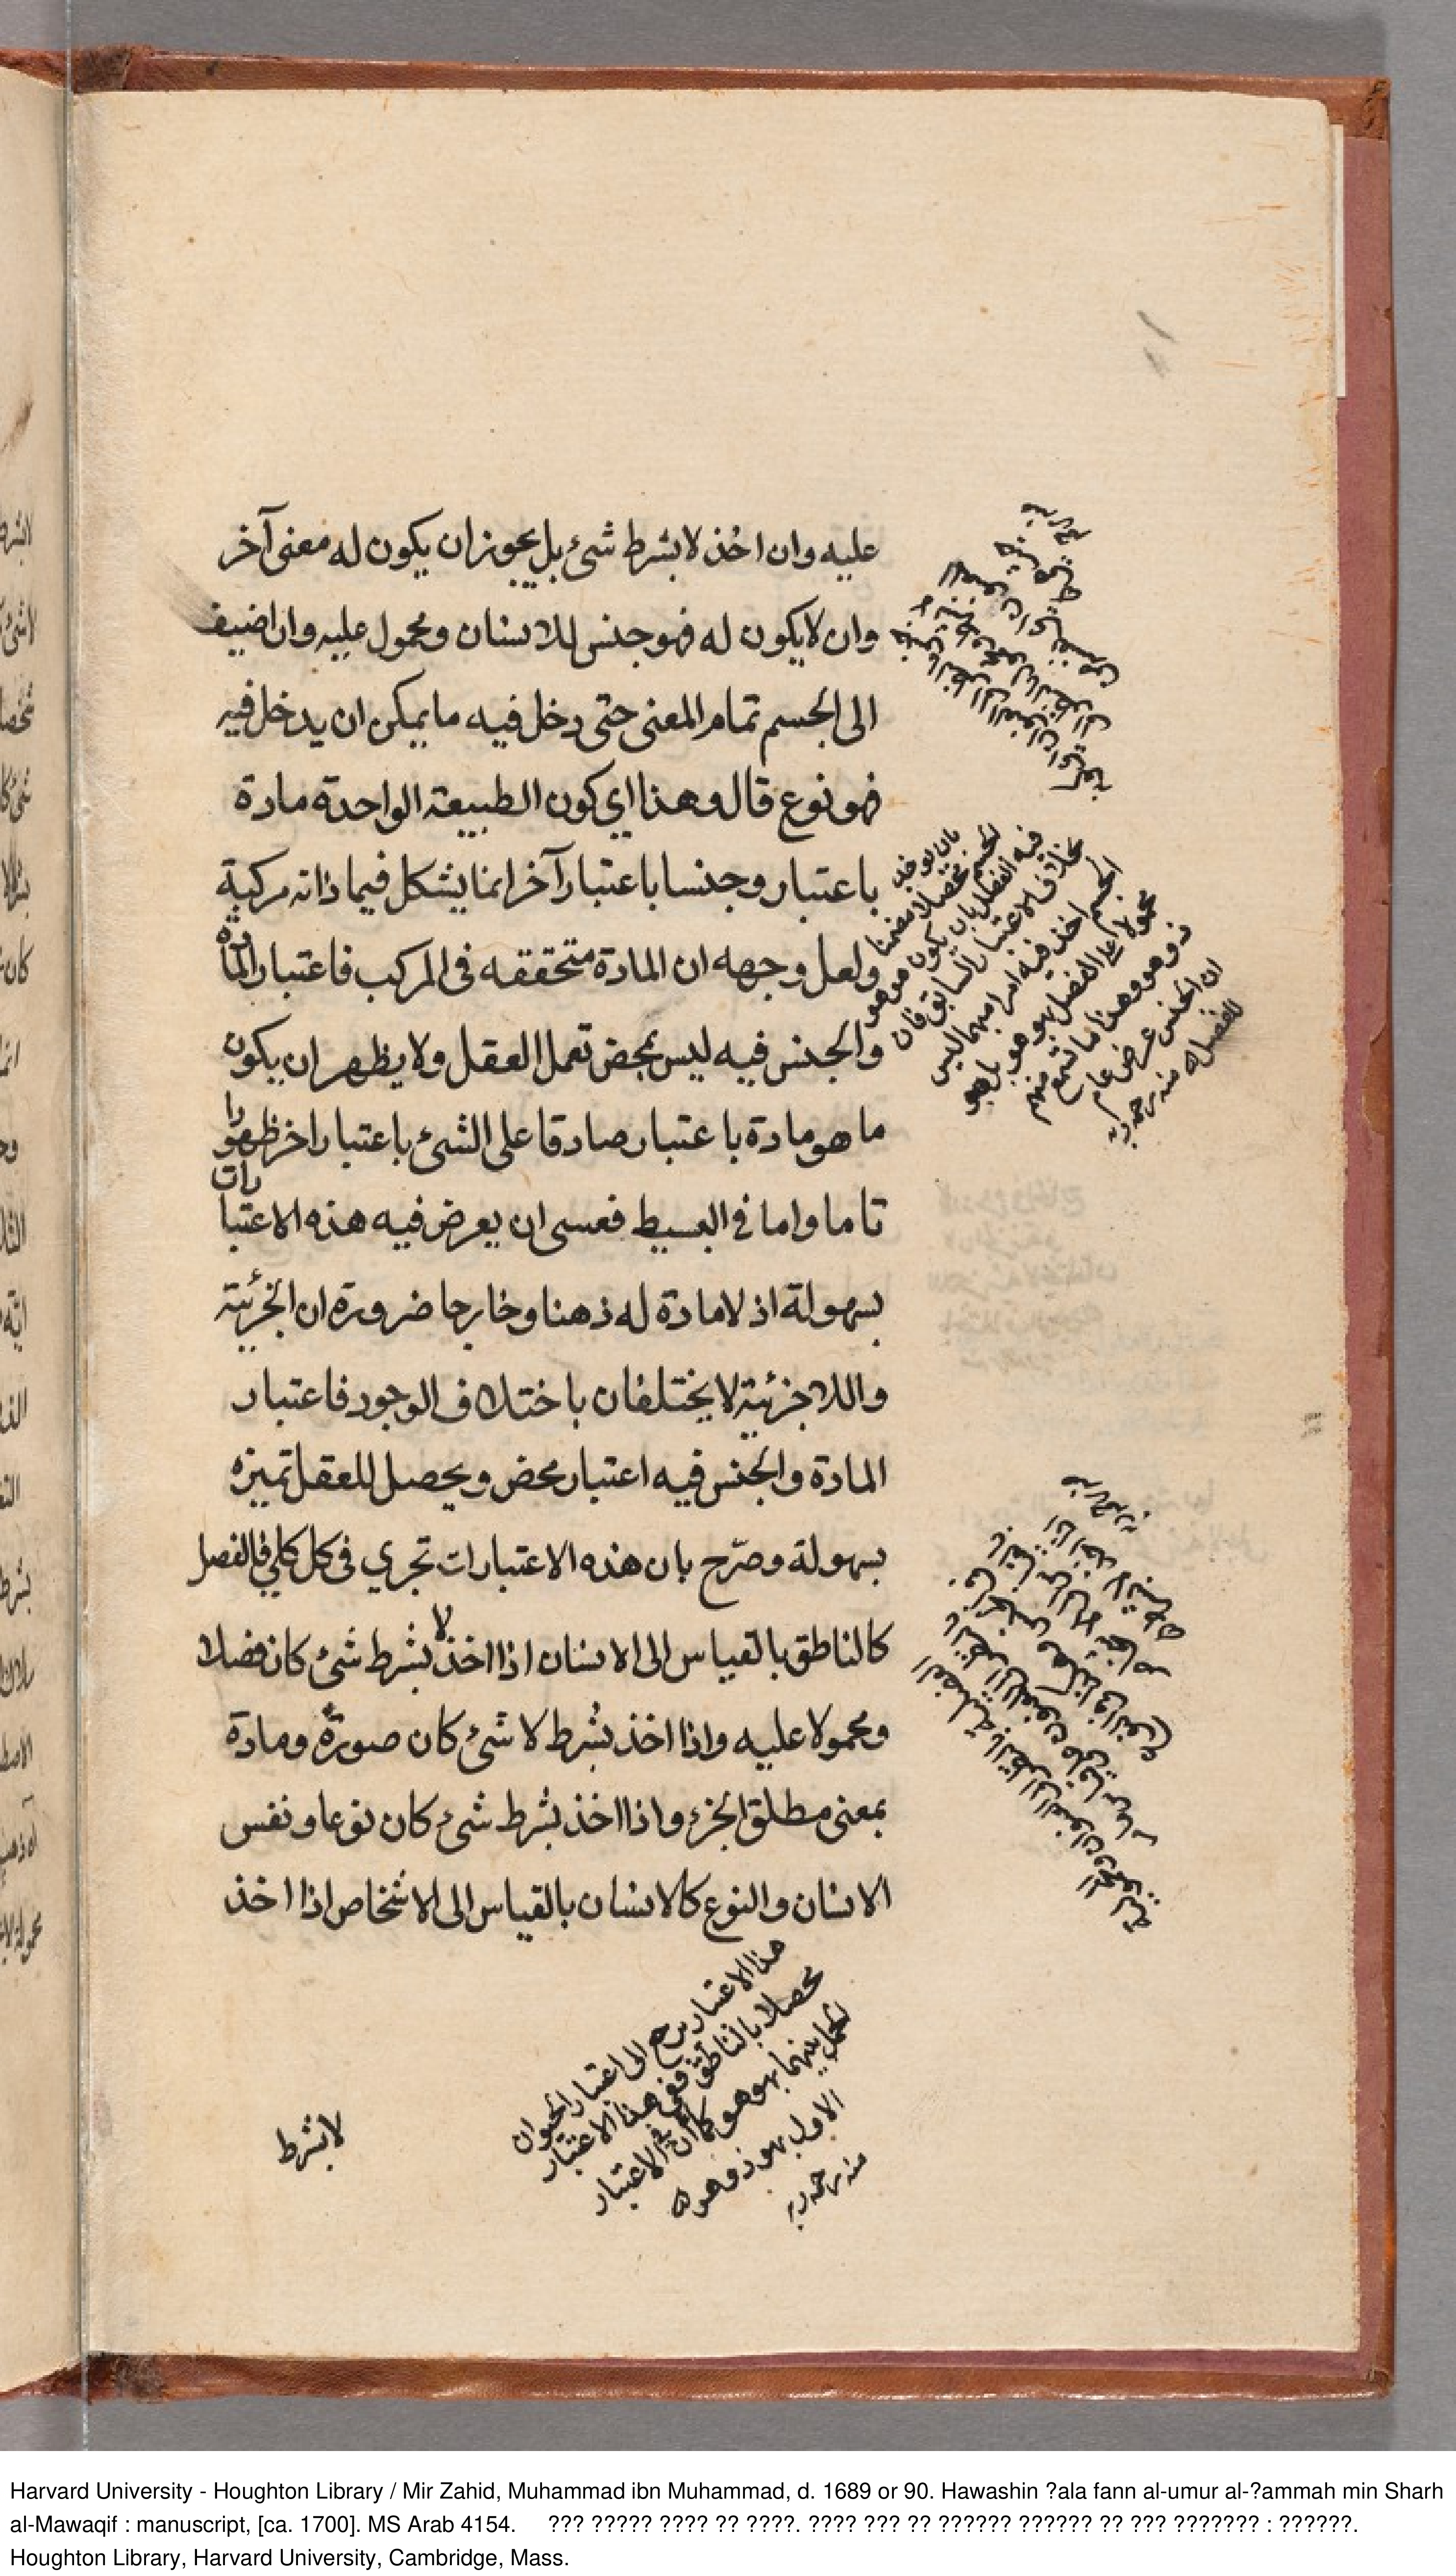 عليه وان اخذ لا بشرط شئ بل يجوز ان يكون له معنى آخر
وان لا يكون له فهو جنس للانسان ومحمول عليه وان اضيف
الى الجسم تمام المعنى حتى دخل فيه ما يمكن ان يدخل فيه
فهو نوع قال وهذا اي كون الطبيعة الواحدة مادة
باعتبار وجنسا باعتبار آخر انما يشكل فيما ذاته مركبة
ولعل وجهه ان المادة متحققه فى المركب فاعتبار المادة
والجنس فيه ليس بمحض تعمل العقل ولا يظهر ان يكون
ما هو مادة باعتبار صادقا على الشئ باعتبار اخر ظهورا
تاما واما في البسيط فعسى ان يعرض فيه هذه الاعتبارات
بسهولة اذ لا مادة له ذهنا وخارجا ضرورة ان الجزئية
واللاجزئية لا يختلفان باختلاف الوجود فاعتبار
المادة والجنس فيه اعتبار محض ويحصل للعقل تميزه
بسهولة وصرّح بان هذه الاعتبارات تجري فى كل كلي فالفصل
كالناطق بالقياس الى الانسان اذا اخذ لا بشرط شئ كان فصلا
ومحمولا عليه واذا اخذ بشرط لا شئ كان صورة ومادة
بمعنى مطلق الجزء واذا اخذ بشرط شئ كان نوعا ونفس
الانسان والنوع كالانسان بالقياس الى الاشخاص اذا اخذ
بان يوخذ
الجسم محصلا مضمنا
فيه الفصل بان يكون هو هو
بخلاف الاعتبار السابق فان
الجسم اخذ فيه امرا مبهما ليس
محمولا على الفصل بهو هو بل هو
ذو هو وهذا ما تسمع منهم
ان الجنس عرض عام
للفصل منه رحمه ربه
هذا الاعتبار يرجع الى اعتبار الحيوان
محصلا بالناطق ففى هذا الاعتبار
الحمل بينهما بهو هو كما ان في الاعتبار
الاول بهو ذو هو
منه رحمه ربه
لا بشرط
Harvard University - Houghton Library / Mir Zahid, Muhammad ibn Muhammad, d. 1689 or 90. Hawashin ?ala fann al-umur al-?ammah min Sharh
al-Mawaqif : manuscript, [ca. 1700]. MS Arab 4154. ??? ????? ???? ?? ????. ???? ??? ?? ?????? ?????? ?? ??? ??????? : ??????.
Houghton Library, Harvard University, Cambridge, Mass.